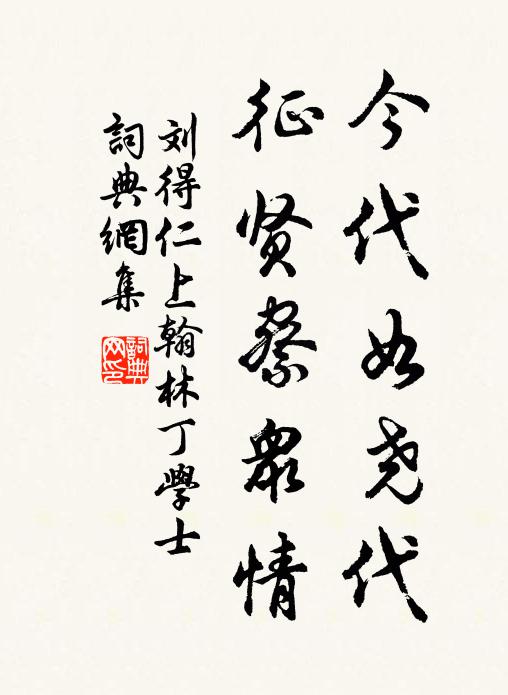 今代如尧代
征贤察众情
刘得仁上翰林丁學士
詞典網集
詞典網印